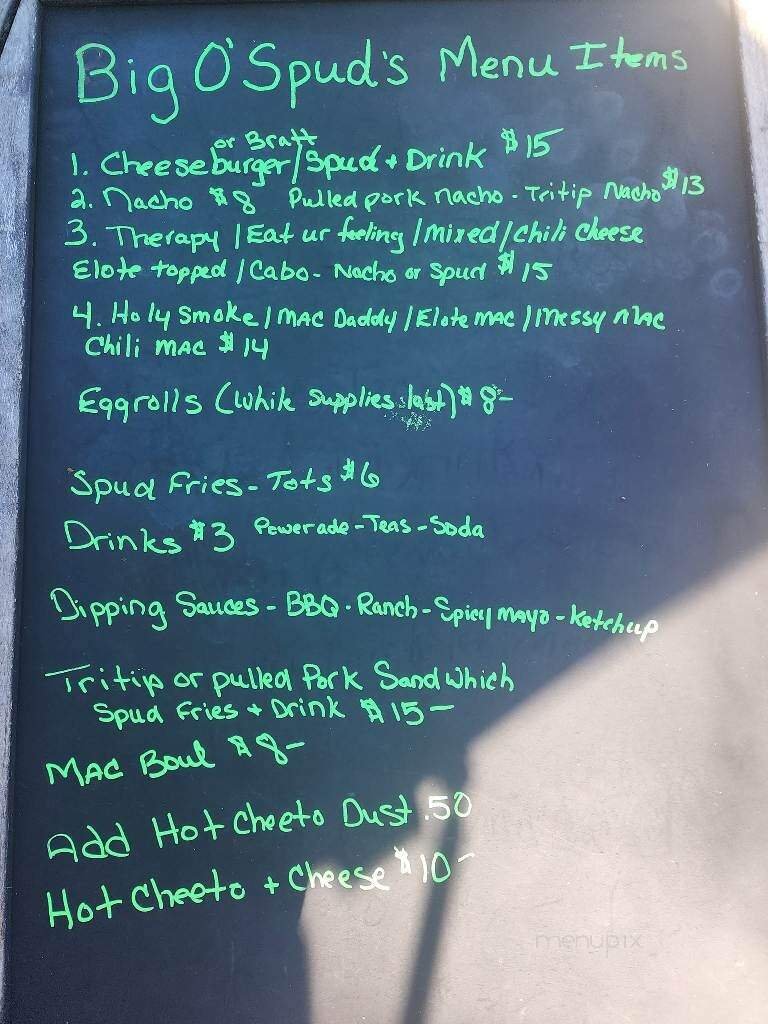 Big O'Spud's Menu Items
or Bratt
1. Cheeseburger/Spud + Drink $15
2. Nacho $8 Pulled pork nacho - Tritip Nacho $13
3. Therapy / Eat ur feeling / mixed / Chili cheese
Elote topped / Cabo - Nacho or Spud $15
4. Holy Smoke / MAC Daddy / Elote MAC / Messy MAC
Chili MAC $14
Eggrolls (while supplies last) $8-
Spud Fries - Tots $6
Drinks $3 Powerade - Teas - Soda
Dipping Sauces - BBQ - Ranch - Spicy mayo - Ketchup
Tritip or pulled Pork Sandwhich
Spud Fries + Drink $15-
MAC Bowl $8-
Add Hot Cheeto Dust .50
Hot Cheeto + Cheese $10-
menupix